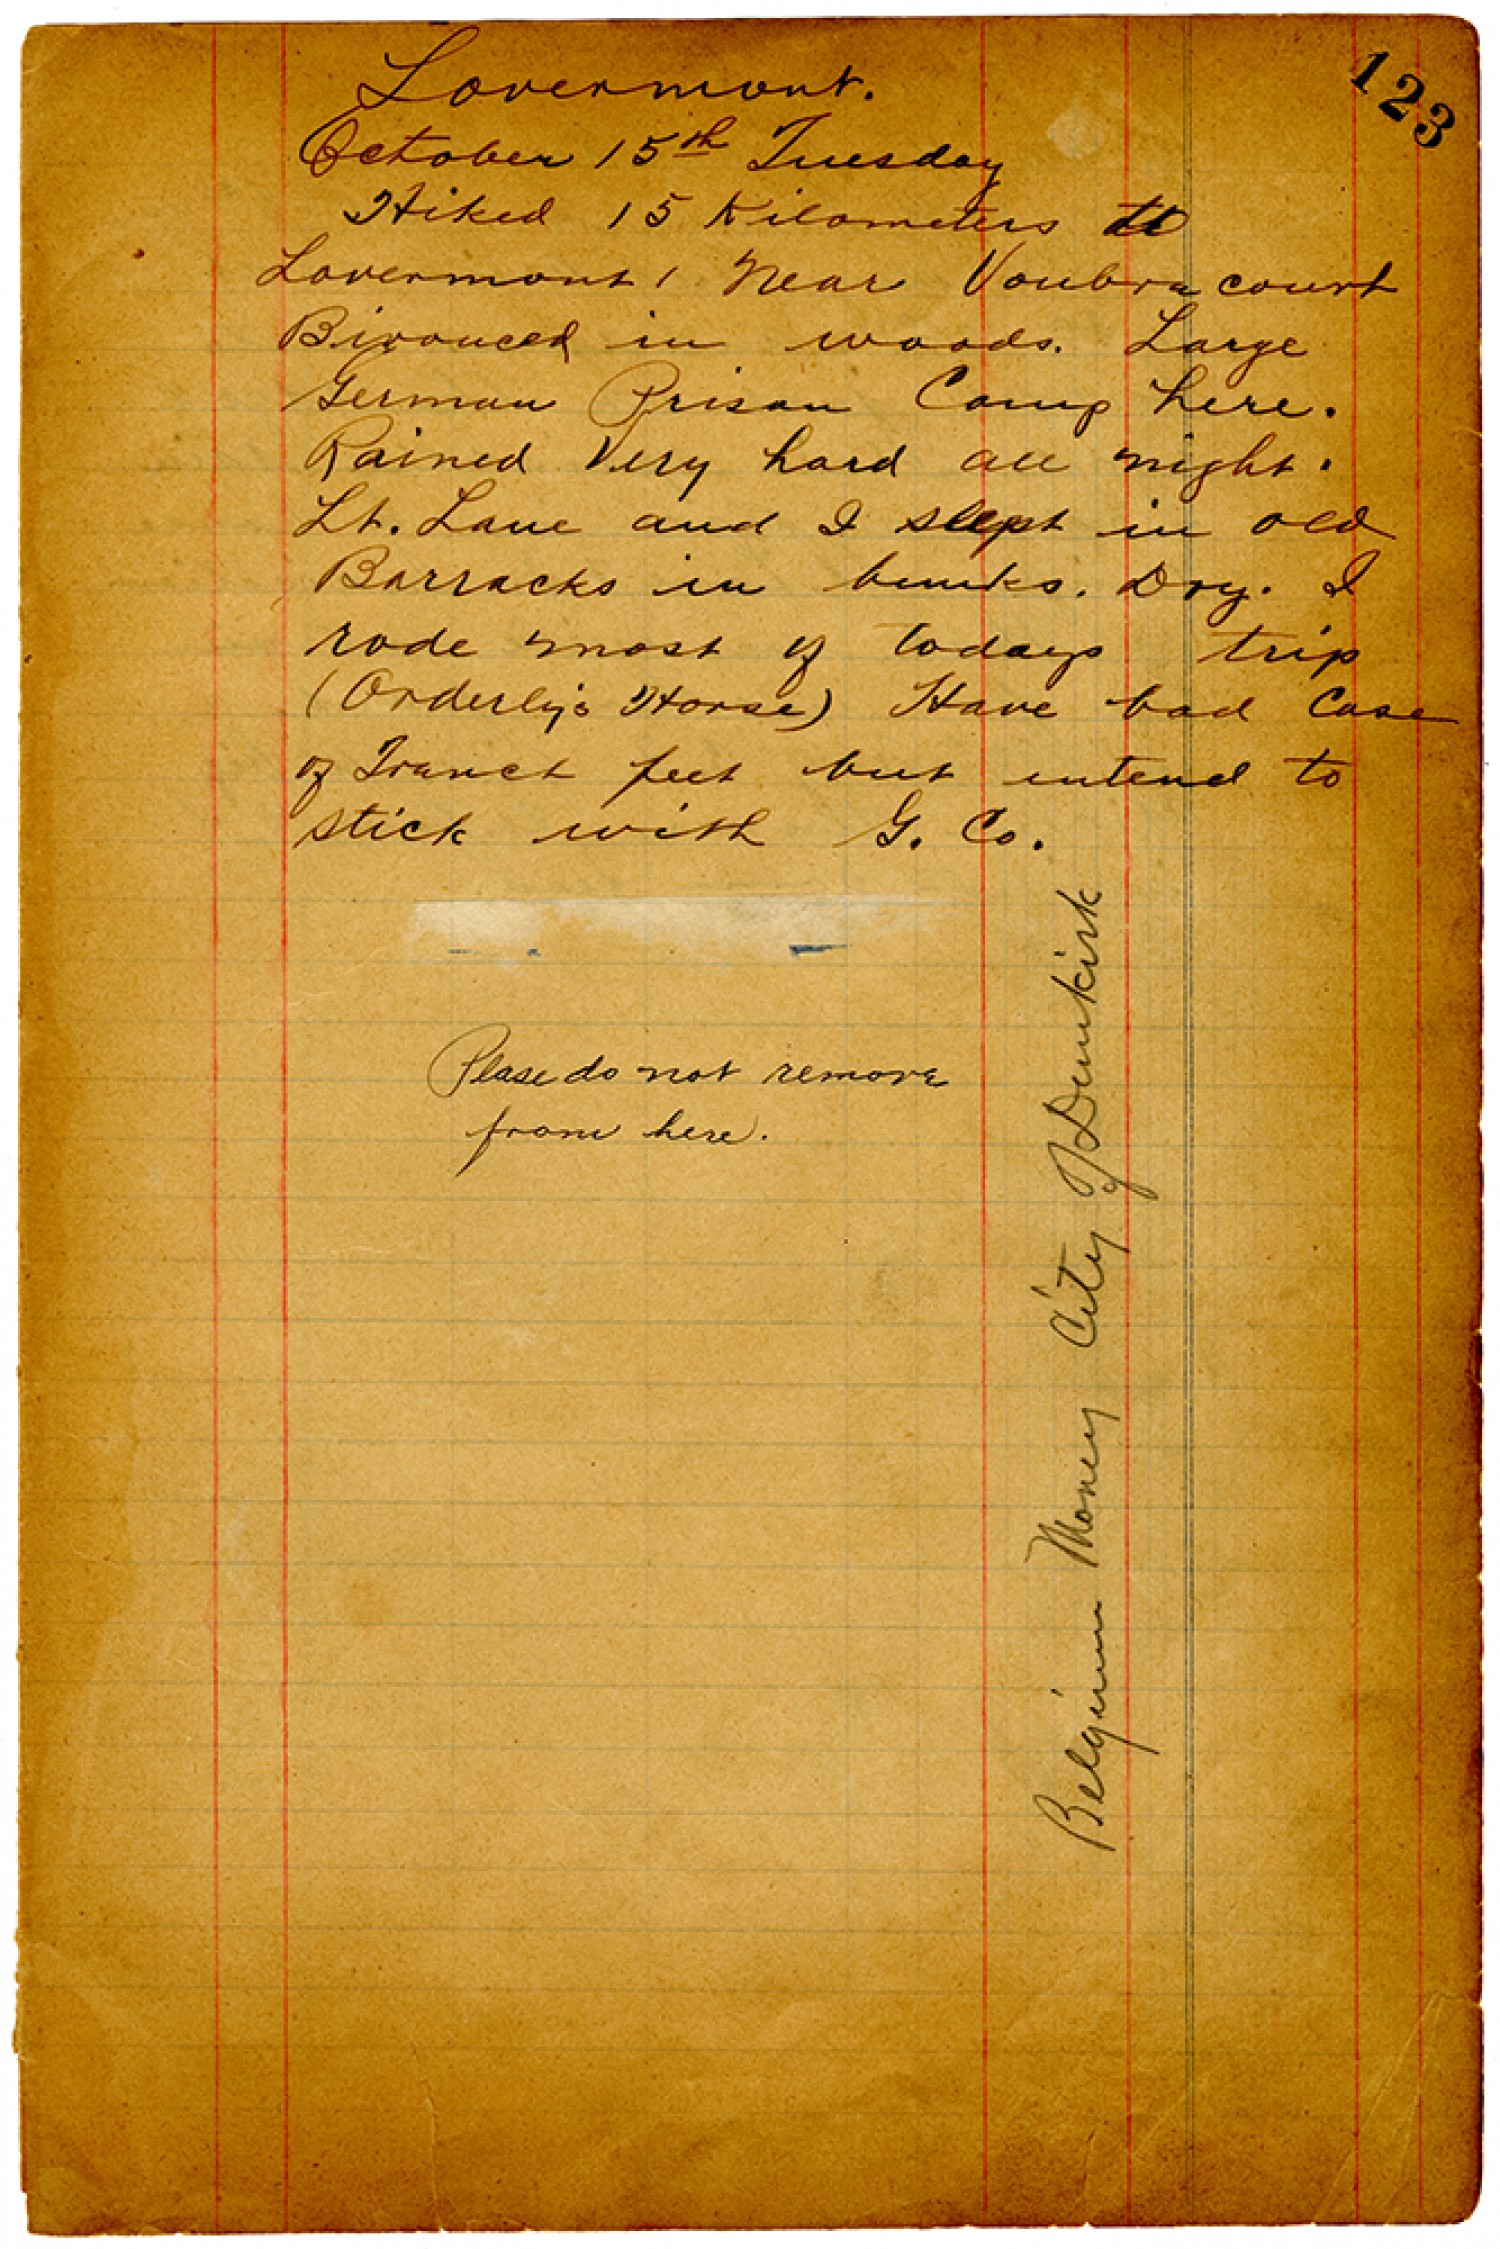 123
Lovermont.
October 15th Tuesday
Hiked 15 Kilometers to
Lovermont, Near Voubracourt
Bivouced in woods. Large
German Prison Camp here.
Rained Very hard all night.
Lt. Lane and I slept in old
Barracks in bunks. Dry. I
rode most of todays trip
(Orderly's Horse) Have bad Case
of Tranct feet but intend to
stick with G. Co.
Please do not remove
from here.
Belgium Money City of Dunkirk